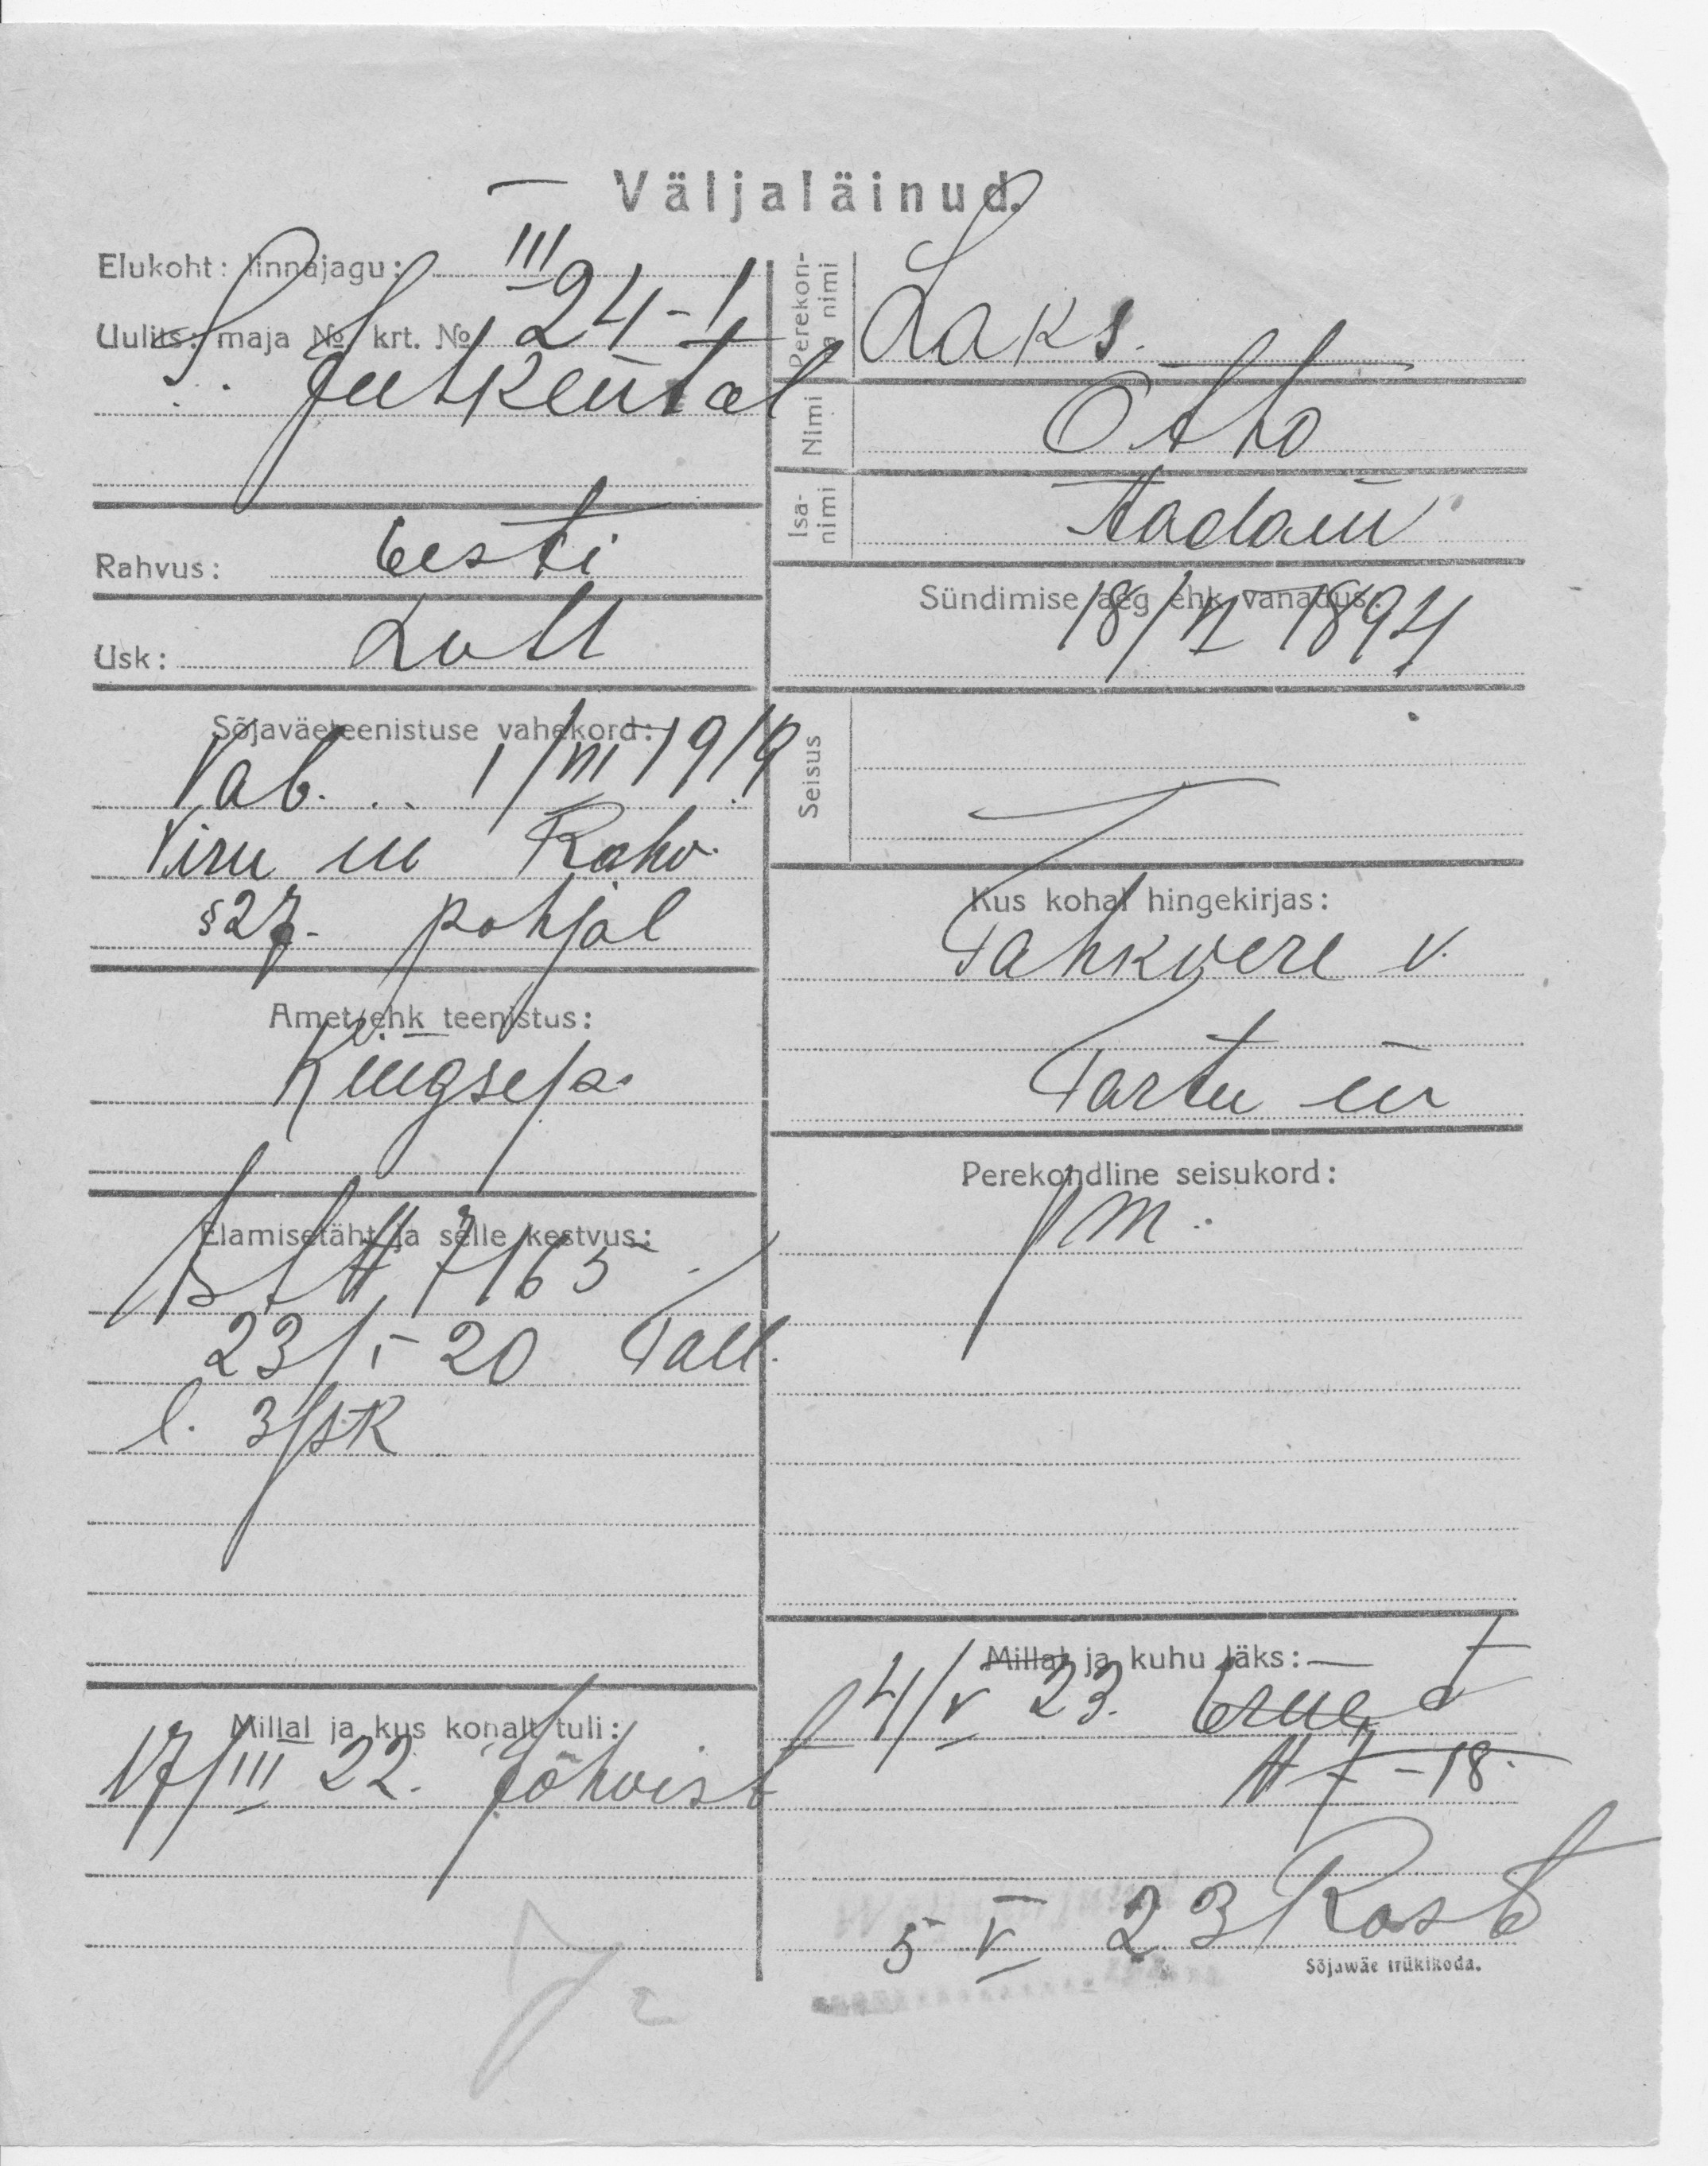 Väljaläinud.
Elukoht: linnajagu: III
Uulits: maja № krt. № 24-1
S. Juhkental
Rahvus: Eesti
Usk: Lutt
Sõjaväeteenistuse vahekord:
Vab. 1/VII 1919
Viru m Rahv.
§27. põhjal
Amet ehk teenistus:
Kingsep.
Elamisetäht ja selle kestvus:
N 7165
23/I-20 Tall.
l. 3 jsk
Millal ja kus kohalt tuli:
17/III 22. Jõhvist
Perekonna nimi Laks.
Nimi Otto
Isanimi Aadam
Sündimise aeg ehk vanadus:
18/VI 1894
Seisus
Kus kohal hingekirjas:
Tahkvere v.
Tartu m
Perekondline seisukord:
m.
Millal ja kuhu läks:
4/V 23.
N 7-18.
5 V 23 Kask
Sõjawäe trükikoda.